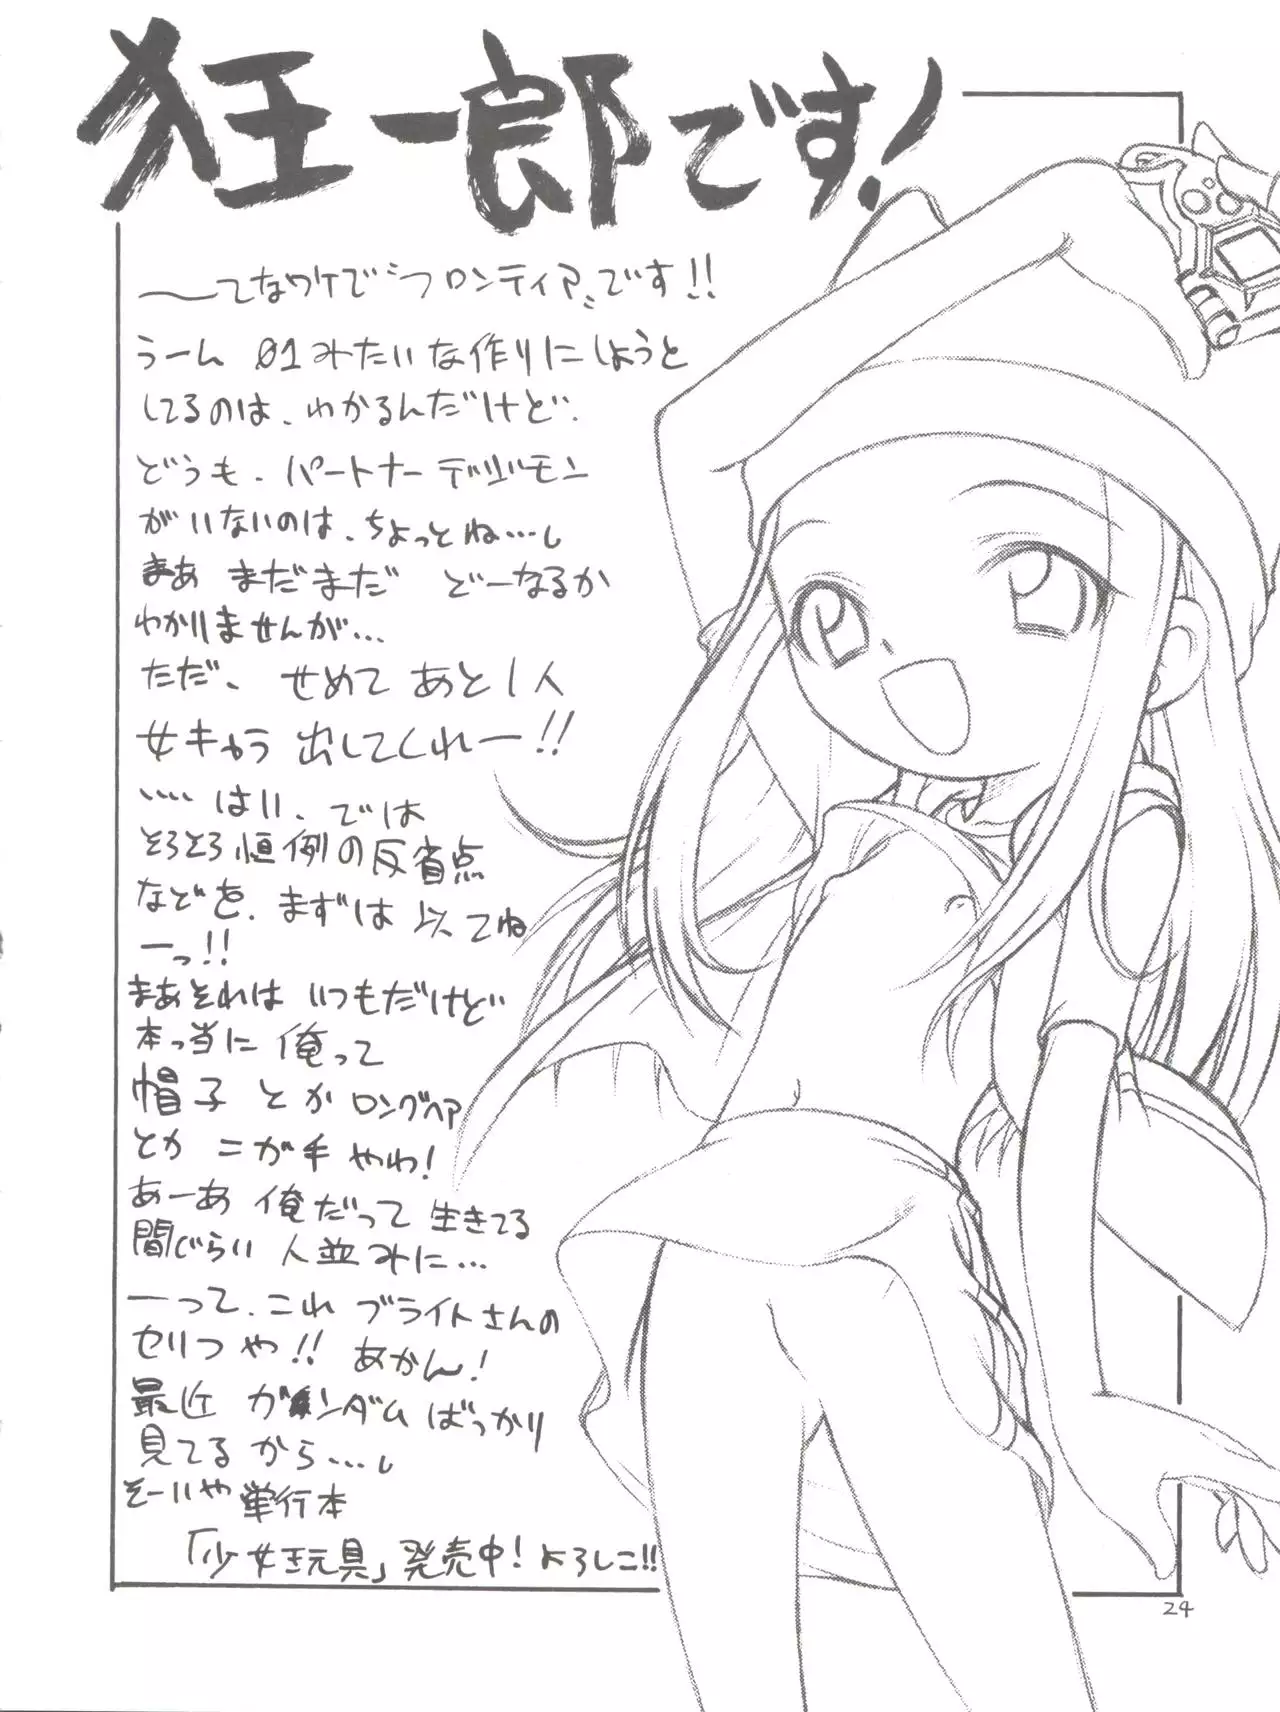 狂一郎です!
〜〜てなワケで"フロンティア"です!!
うーん 01みたいな作りにしようと
してるのは、わかるんだけど、
どうも、パートナーデジモン
がいないのは、ちょっとね…し
まあ まだまだ どーなるか
わかりませんが…
ただ、せめて あと1人
女キャラ 出してくれー!!
‥‥はい、では
そろそろ恒例の反省点
などを、まずは 以てね
ーっ!!
まあそれは いつもだけど
本っ当に 俺って
帽子 とか ロングヘア
とか ニガ手 やわ!
あーあ 俺だって 生きてる
間じらい 人並みに…
ーって、これ ブライトさんの
セリフや!! あかん!
最近 ガンダム ばっかり
見てるから…し
そーいや 単行本
「少女玩具」発売中! よろしこ!!
24